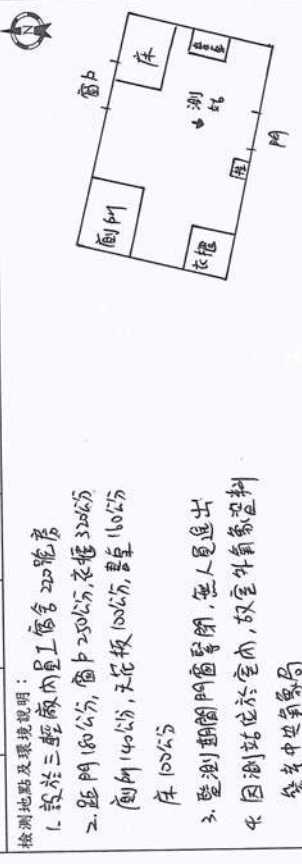 檢測地點及環境說明：
1. 設於三輕廠內員工宿舍 222號房
2. 距門180公分,窗戶250公分,衣櫃320公分
廁所140公分,天花板100公分,書桌160公分
床100公分
3. 監測期間門窗緊閉,無人員進出
4. 因測站位於室內,故室外氣象資料
參考中央氣象局
N
窗戶
床
廁所
書桌
測站
衣櫃
櫃
門